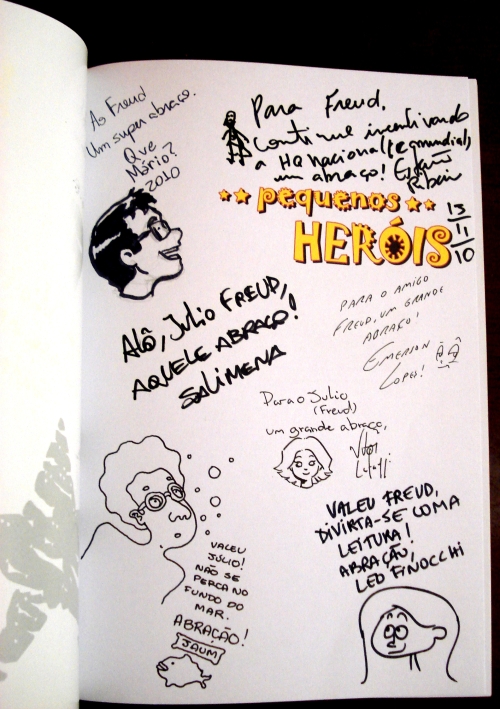 Ao Freud
Um super abraço.
Que
Mário?
2010
Para Freud,
Continue incentivando
a HQ nacional (e mundial)
um abraço!
13
11
10
pequenos
HERÓIS
Alô, Julio FREUD,
AQUELE ABRAÇO!
SALIMENA
PARA O AMIGO
FREUD, UM GRANDE
ABRAÇO!
EMERSON
LOPES!
Para o Julio
(Freud)
um grande abraço,
VALEU FREUD,
DIVIRTA-SE COM A
LEITURA!
ABRAÇÃO,
LEO FINOCCHI
VALEU
JÚLIO!
NÃO SE
PERCA NO
FUNDO DO
MAR.
ABRAÇÃO!
JAUM